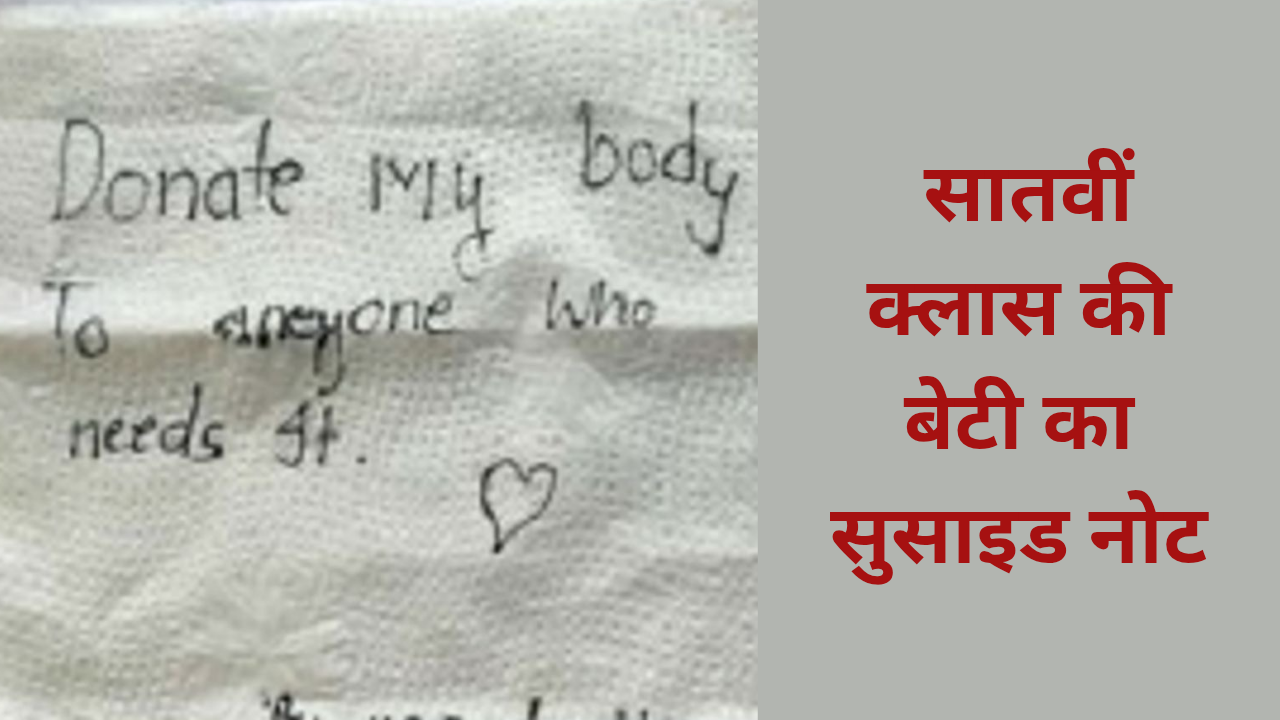 Donate My body
To aneyone who
needs It.
सातवीं
क्लास की
बेटी का
सुसाइड नोट